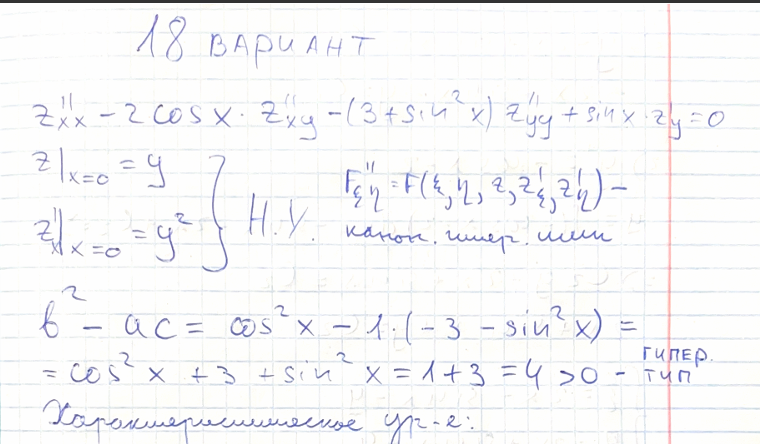 18 ВАРИАНТ
z''xx - 2cosx · z''xy - (3+sin²x) z''yy + sinx · zy = 0
z|x=0 = y
z'x|x=0 = y²
} Н.У.
F''ξη = F(ξ, η, z, z'ξ, z'η) –
канон. гипер. тип
b² - ac = cos²x - 1·(-3 - sin²x) =
= cos²x + 3 + sin²x = 1+3 = 4 > 0 - ГИПЕР. ТИП
Характеристическое ур-е: